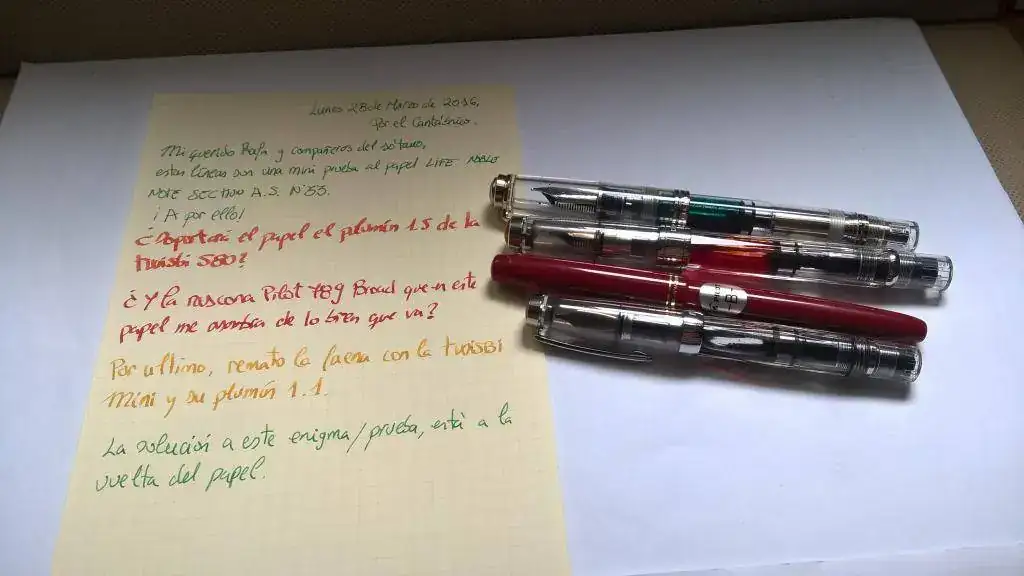 Lunes 28 de Marzo de 2016,
Por el Cantábrico.
Mi querido Rafa y compañeros del sótano,
estas líneas son una mini prueba al papel LIFE NOBLE
NOTE SECTION A.S. Nº33.
¡A por ello!
¿Soportará el papel el plumín 1.5 de la
twisbi 580?
¿Y la rascona Pilot 78g Broad que en este
papel me asombra de lo bien que va?
Por ultimo, remato la faena con la twisbi
mini y su plumín 1.1.
La solución a este enigma/prueba, está a la
vuelta del papel.
-B-